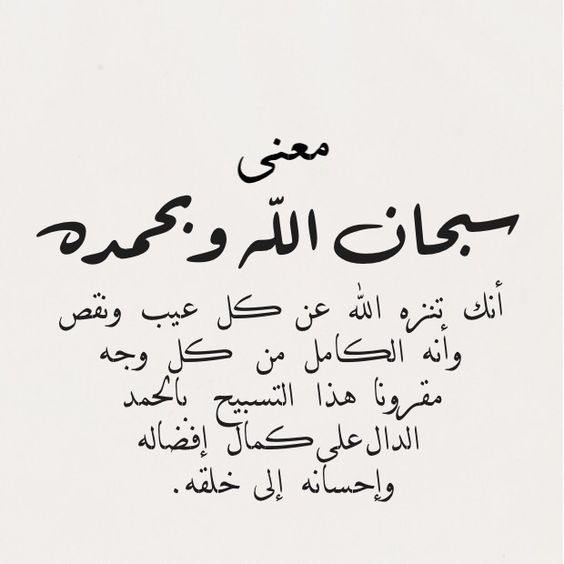 معنى
سبحان اللّه وبحمده
أنك تنزه الله عن كل عيب ونقص
وأنه الكامل من كل وجه
مقرونا هذا التسبيح بالحمد
الدال على كمال إفضاله
وإحسانه إلى خلقه.